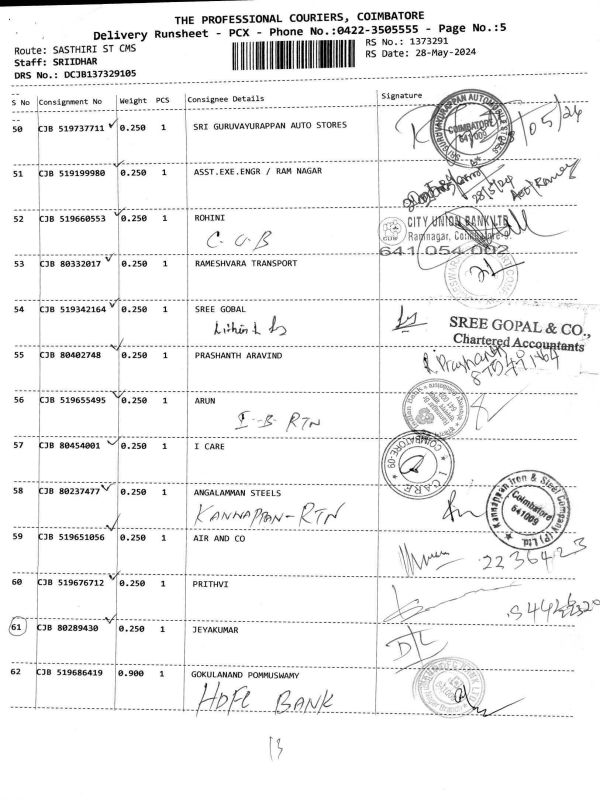 THE PROFESSIONAL COURIERS, COIMBATORE
Delivery Runsheet - PCX - Phone No.:0422-3505555 - Page No.:5
Route: SASTHIRI ST CMS RS No.: 1373291
Staff: SRIIDHAR RS Date: 28-May-2024
DRS No.: DCJB137329105
S No Consignment No Weight PCS Consignee Details Signature
50 CJB 519737711 0.250 1 SRI GURUVAYURAPPAN AUTO STORES
COIMBATORE
641009
51 CJB 519199980 0.250 1 ASST.EXE.ENGR / RAM NAGAR
28/5/24
52 CJB 519660553 0.250 1 ROHINI
C.U.B
CITY UNION BANK LTD
Ramnagar, Coimbatore-9.
641 054 002
53 CJB 80332017 0.250 1 RAMESHVARA TRANSPORT
54 CJB 519342164 0.250 1 SREE GOBAL
SREE GOPAL & CO.,
Chartered Accountants
55 CJB 80402748 0.250 1 PRASHANTH ARAVIND
R. Prashanth
56 CJB 519655495 0.250 1 ARUN
I-B-RTN
57 CJB 80454001 0.250 1 I CARE
I CARE
COIMBATORE-09
58 CJB 80237477 0.250 1 ANGALAMMAN STEELS
KANNAPPAN-RTN
Kannappan Iron & Steel Company (P) Ltd.
Coimbatore
641009
59 CJB 519651056 0.250 1 AIR AND CO
2236423
60 CJB 519676712 0.250 1 PRITHVI
61 CJB 80289430 0.250 1 JEYAKUMAR
62 CJB 519686419 0.900 1 GOKULANAND POMMUSWAMY
HDFC BANK
13